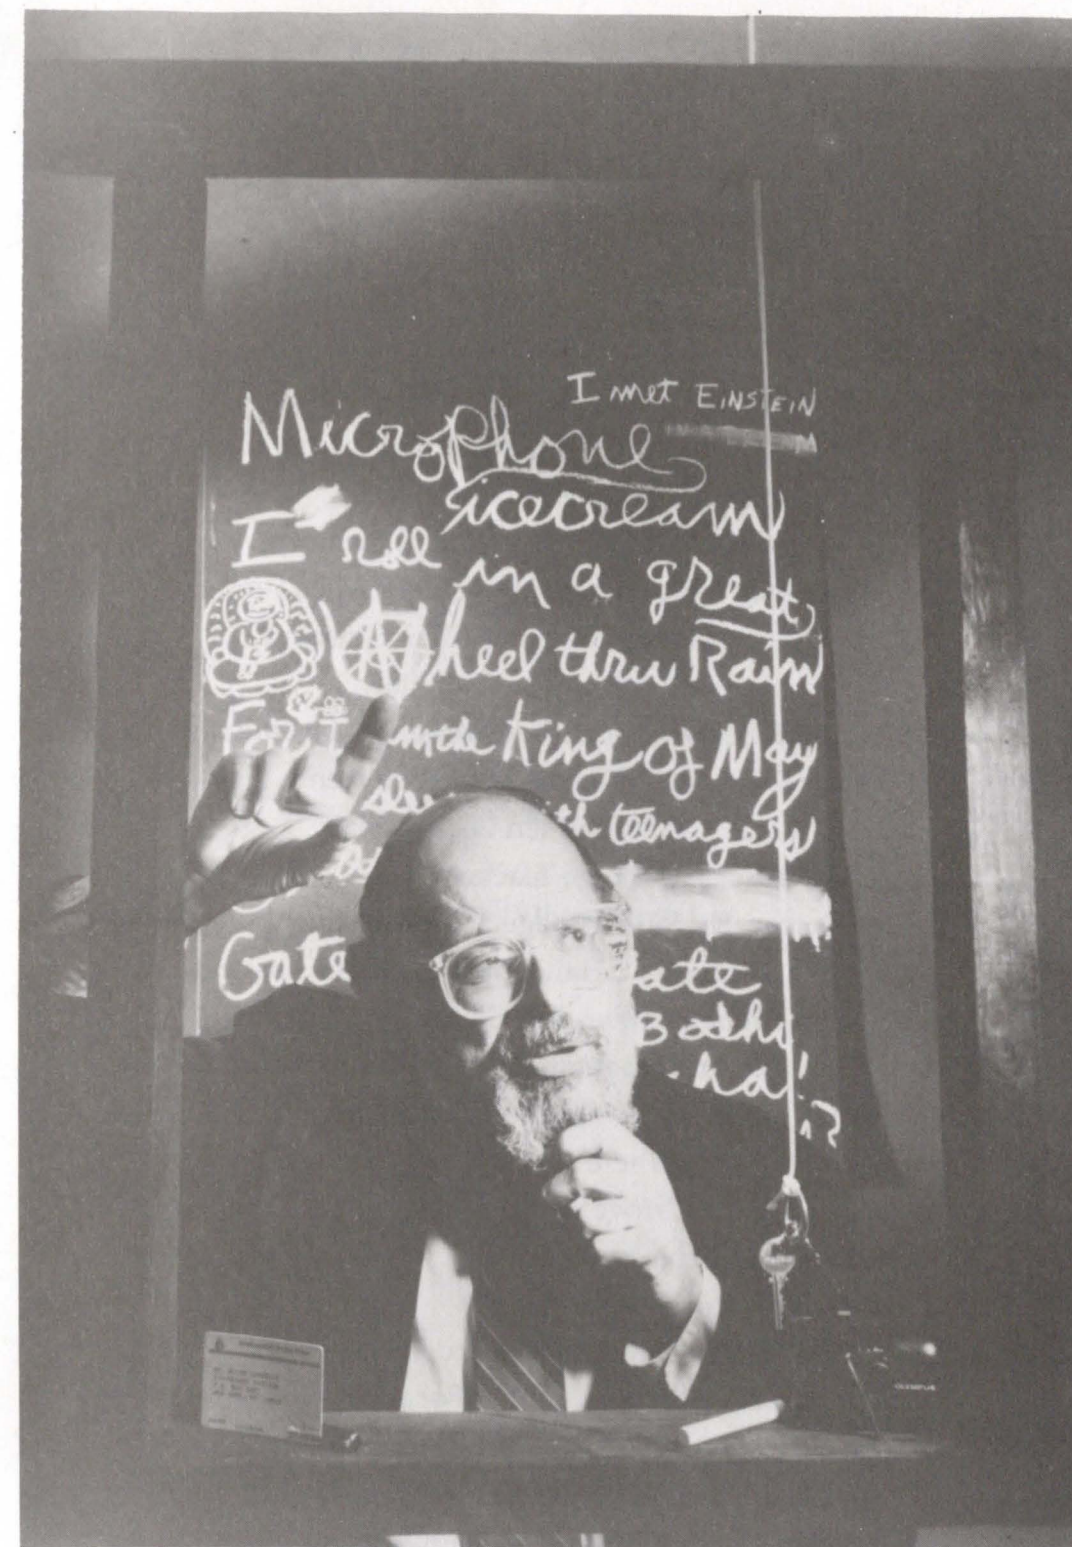 I met EINSTEIN
Microphone
icecream
I roll in a great
Wheel thru Rain
For I in the King of May
with teenagers
Gate ate
Bodhi
ha!
OLYMPUS